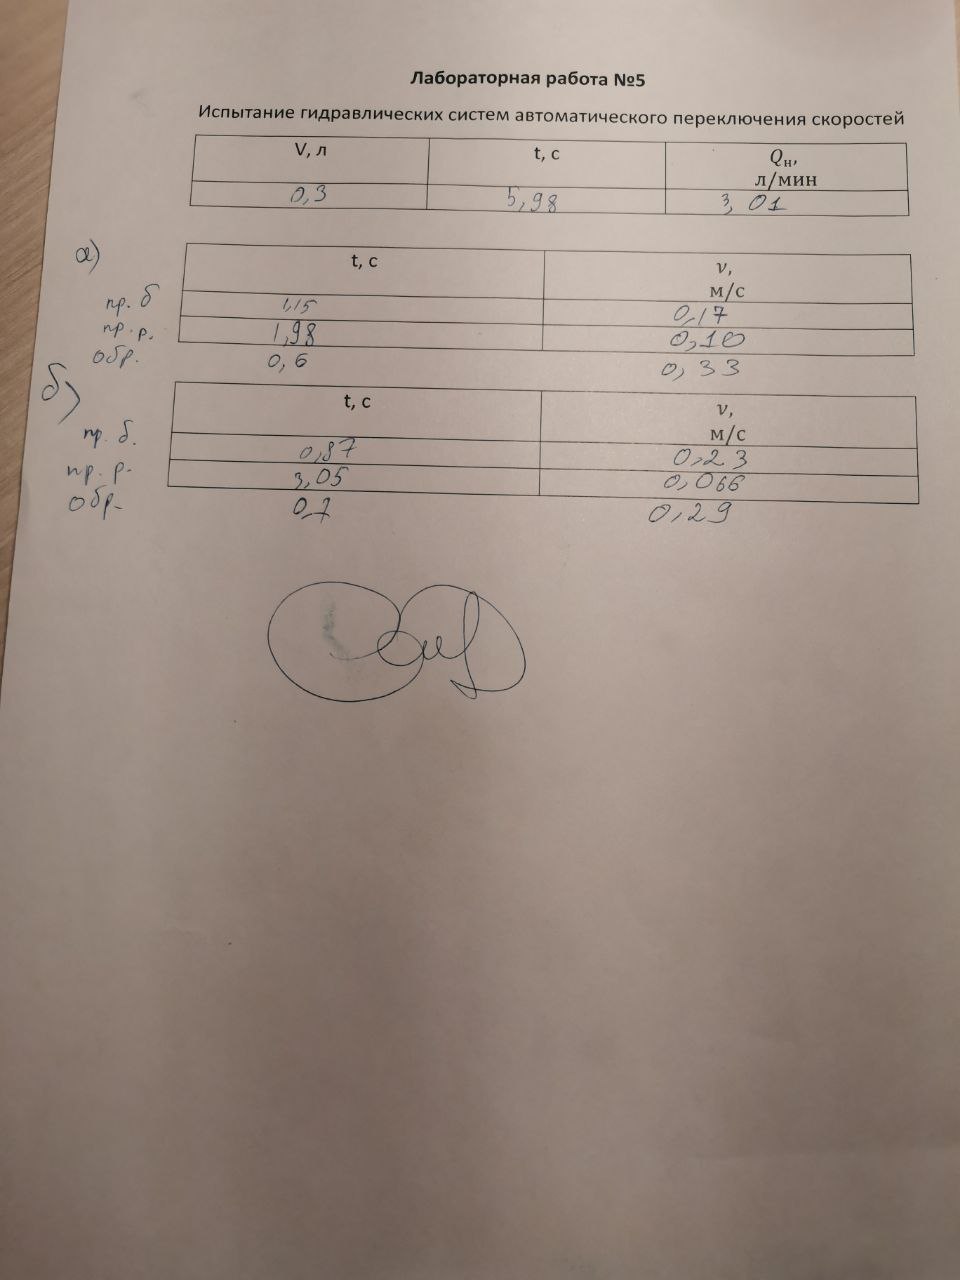 Лабораторная работа №5
Испытание гидравлических систем автоматического переключения скоростей
V, л t, с Qн, л/мин
0,3 5,98 3,01
а)
t, с ν, м/с
пр. б 1,15 0,17
пр. р. 1,98 0,10
обр. 0,6 0,33
б)
t, с ν, м/с
пр. б. 0,87 0,23
пр. р. 3,05 0,066
обр. 0,7 0,29